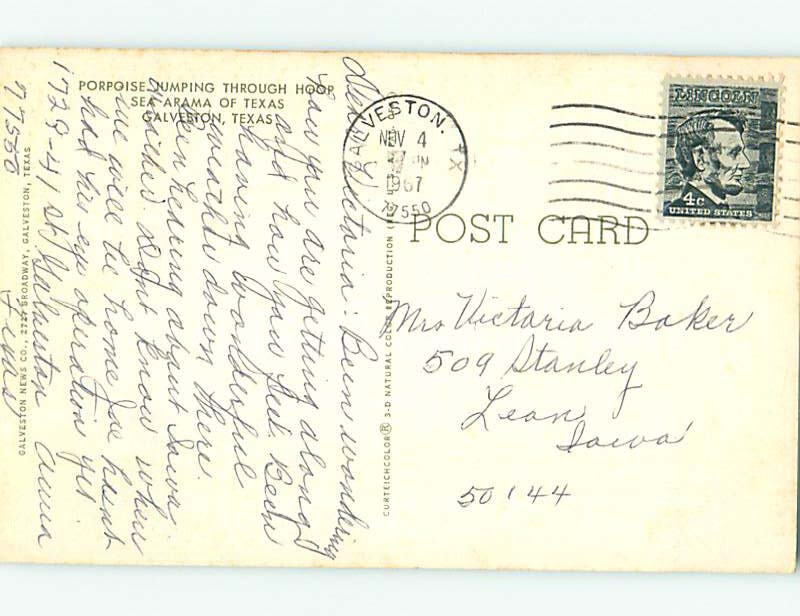 PORPOISE JUMPING THROUGH HOOP
SEA-ARAMA OF TEXAS
GALVESTON, TEXAS
Dear Victoria: Been wondering
how you are getting along
and how you feel. Been
having wonderful
weather down there.
Been hearing about Iowa
weather. Don't know when
we will be home Joe hasnt
had his eye operation yet.
1728-41 St Galveston Anna
77550 Texas
GALVESTON NEWS CO., 2727 BROADWAY, GALVESTON, TEXAS
CURTEICHCOLOR® 3-D NATURAL COLOR REPRODUCTION
GALVESTON, TX
NOV 4
PM
1967
77550
LINCOLN
4c
UNITED STATES
POST CARD
Mrs Victoria Baker
509 Stanley
Leon
Iowa
50144